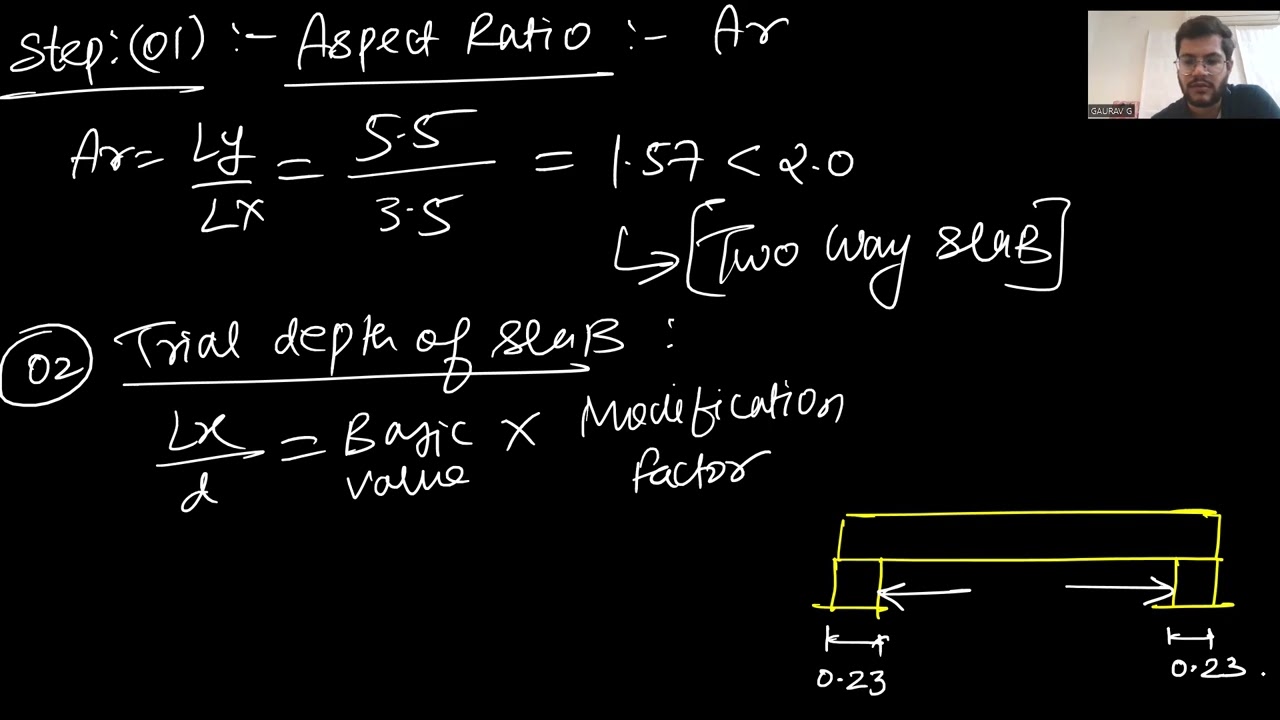 Step:(01) :- Aspect Ratio :- Ar
GAURAV G
Ar = Ly/Lx = 5.5/3.5 = 1.57 < 2.0
↳ [Two Way slaB]
02 Trial depth of slaB :
Lx/d = Basic value × Modification factor
0.23
0.23.